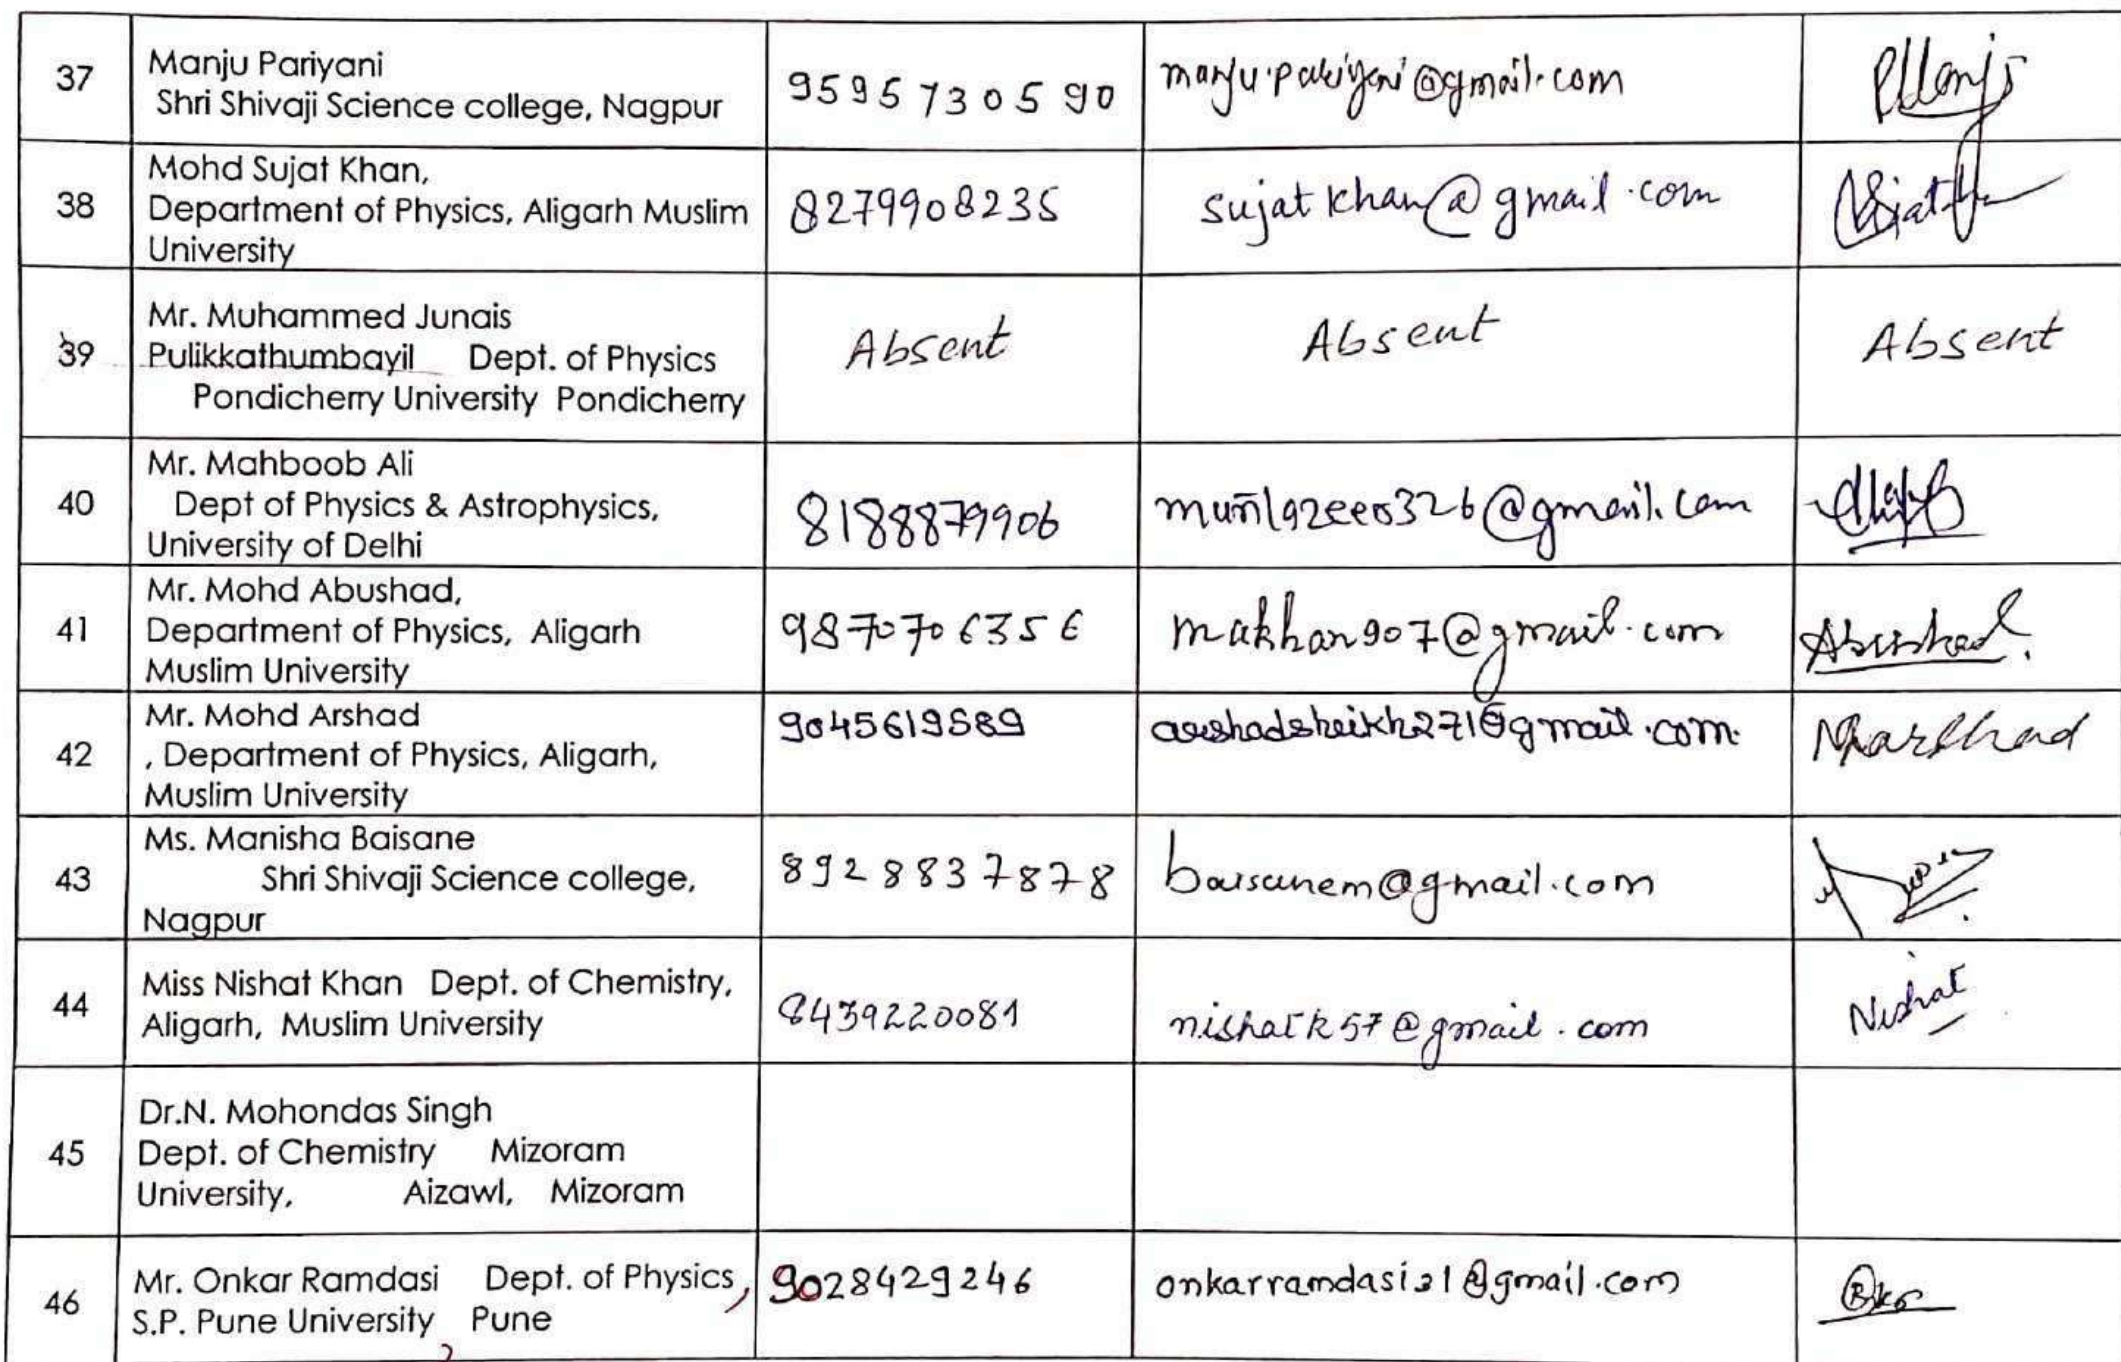 37
Manju Pariyani
Shri Shivaji Science college, Nagpur
9595730590
manju.pariyani@gmail.com
38
Mohd Sujat Khan,
Department of Physics, Aligarh Muslim
University
8279908235
sujatkhan@gmail.com
39
Mr. Muhammed Junais
Pulikkathumbayil Dept. of Physics
Pondicherry University Pondicherry
Absent
Absent
Absent
40
Mr. Mahboob Ali
Dept of Physics & Astrophysics,
University of Delhi
8188879906
41
Mr. Mohd Abushad,
Department of Physics, Aligarh
Muslim University
9870706356
makhan907@gmail.com
Abushad.
42
Mr. Mohd Arshad
, Department of Physics, Aligarh,
Muslim University
9045619589
arshadsheikh271@gmail.com.
43
Ms. Manisha Baisane
Shri Shivaji Science college,
Nagpur
8928837878
baisanem@gmail.com
44
Miss Nishat Khan Dept. of Chemistry,
Aligarh, Muslim University
8439220081
nishatk57@gmail.com
Nishat
45
Dr.N. Mohondas Singh
Dept. of Chemistry Mizoram
University, Aizawl, Mizoram
46
Mr. Onkar Ramdasi Dept. of Physics,
S.P. Pune University, Pune
9028429246
onkarramdasi21@gmail.com